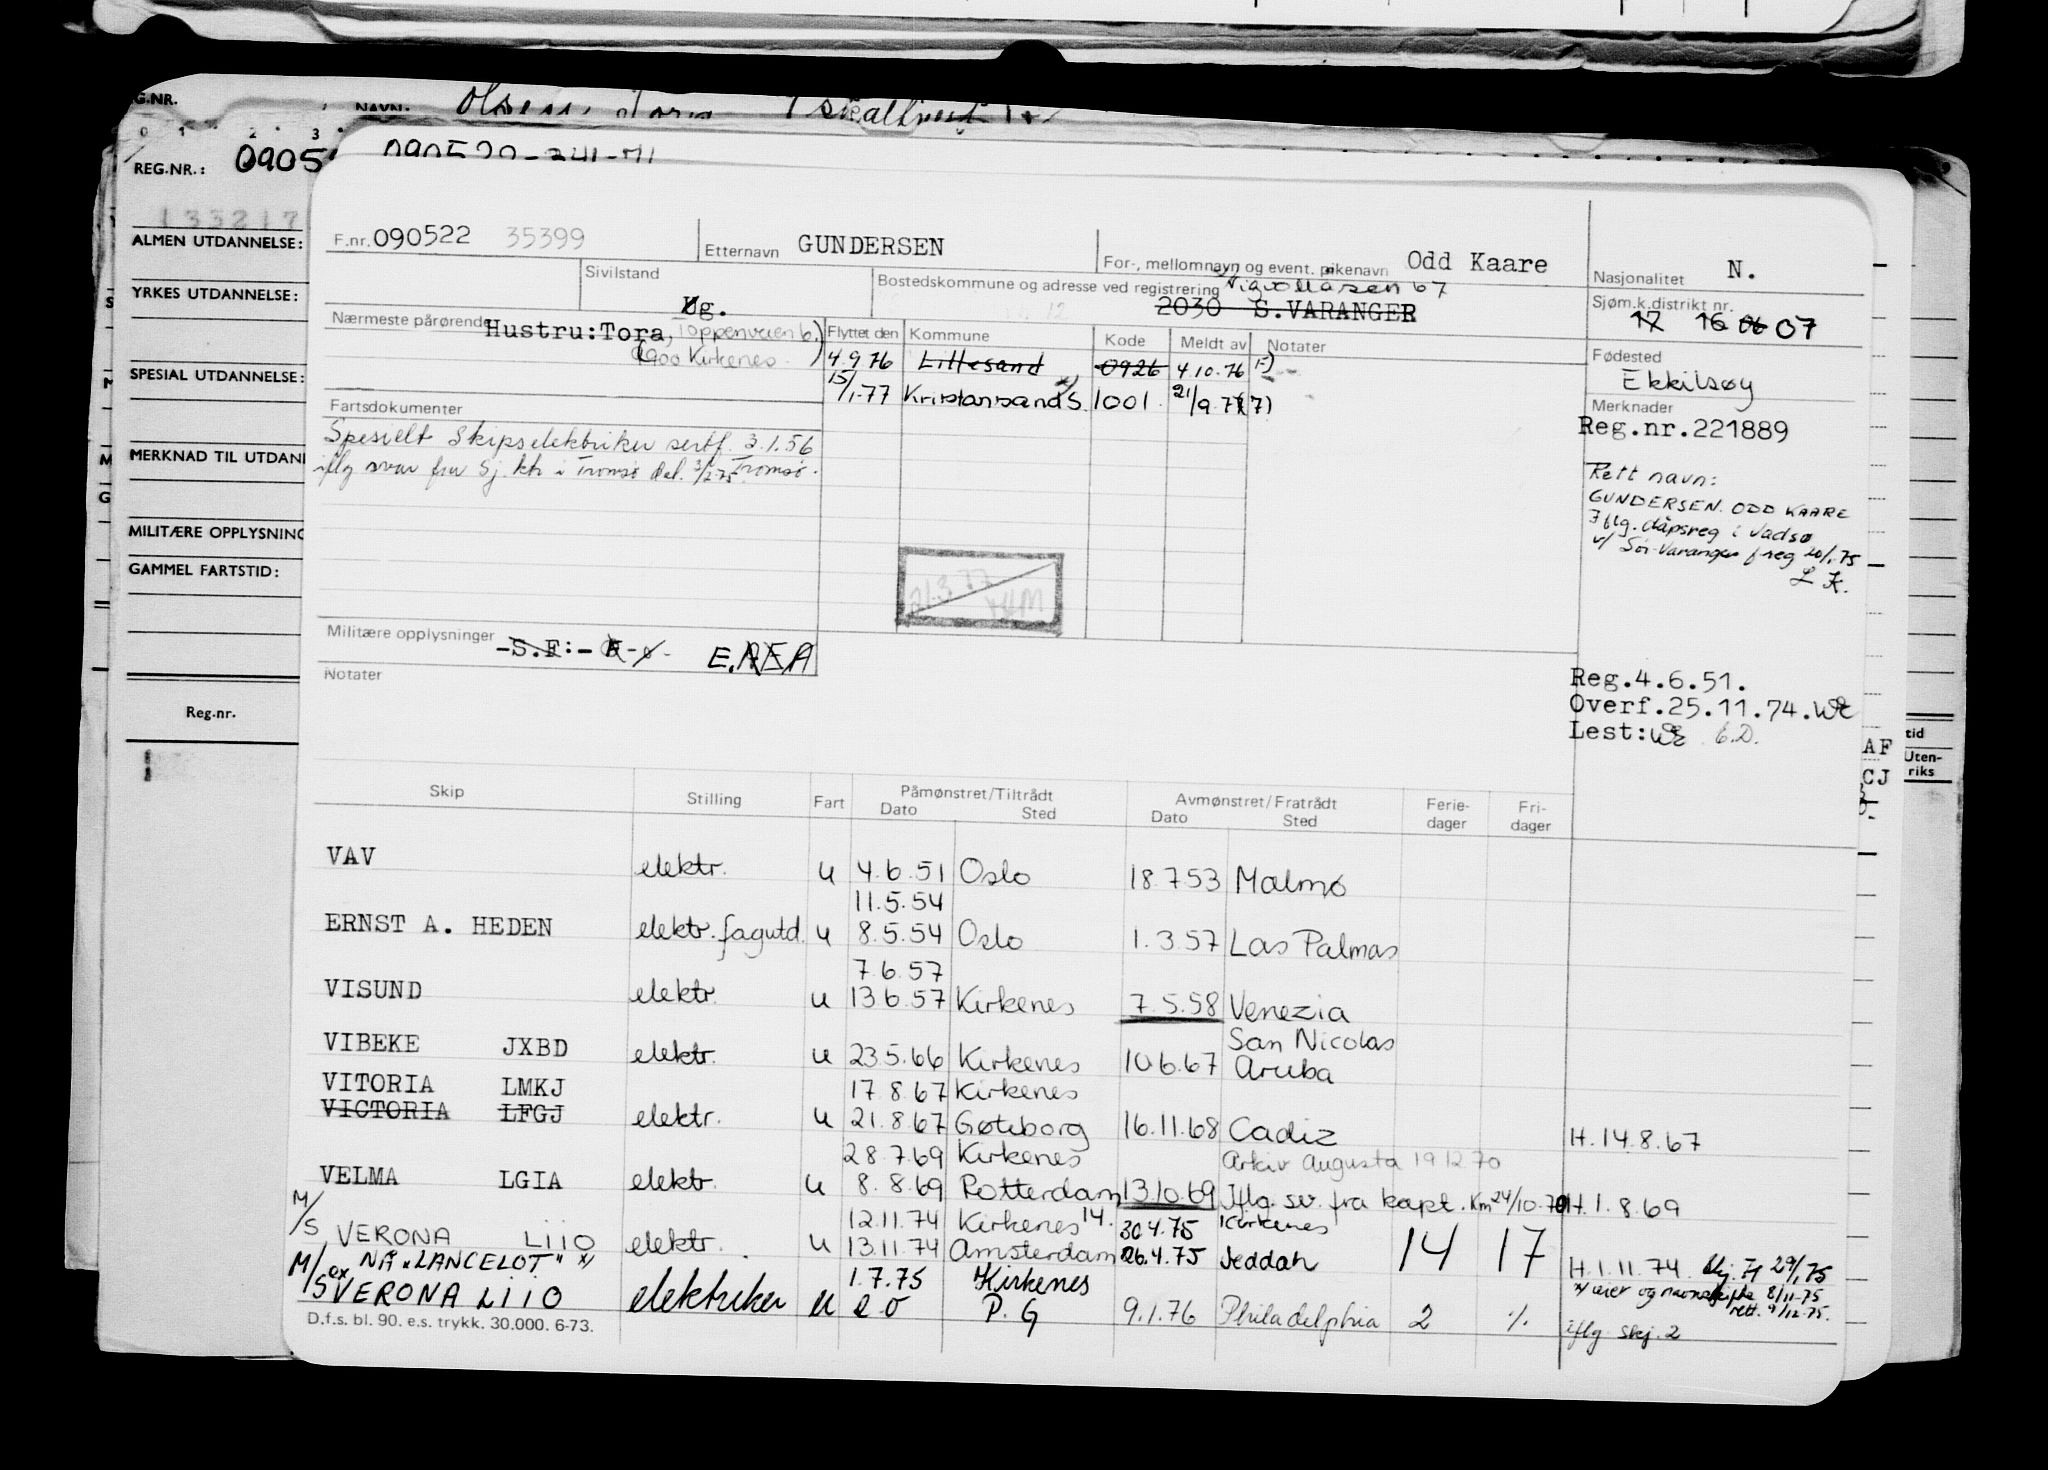 G.NR.
NAVN: Olsen,
0 1 2 3
REG.NR.: 0905
090520-241-71
133217
ALMEN UTDANNELSE:
YRKES UTDANNELSE:
SPESIAL UTDANNELSE:
MERKNAD TIL UTDANN
MILITÆRE OPPLYSNING
GAMMEL FARTSTID:
Reg.nr.
F.nr. 090522 35399
Etternavn GUNDERSEN
For-, mellomnavn og event. pikenavn Odd Kaare
Nasjonalitet N.
Sivilstand
Ug.
Bostedskommune og adresse ved registrering
67
2030 S.VARANGER
Sjøm.k.distrikt nr.
17 16 06 07
Nærmeste pårørende Hustru:Tora, Toppenveien 6.)
(9900 Kirkenes.)
Flyttet den Kommune Kode Meldt av Notater
4.9.76 Lillesand 0926 4.10.76 F)
15/1-77 Kristiansand S. 1001 21/9.77 (7)
Fødested
Ekkilsøy
Merknader
Reg.nr.221889
Rett navn:
GUNDERSEN. ODD KAARE
Iflg. dåpsreg i Vadsø
v/ Sør-Varanger f.reg 20/1.75
L K.
Fartsdokumenter
Spesielt Skipselektriker sertf. 3.1.56
iflg svar fra Sj. ktr i Tromsø dat. 3/2-75. Tromsø.
21.3.77
HM
Militære opplysninger -S.F:-
E.A.E.A
Notater
Reg.4.6.51.
Overf.25.11.74.WE
Lest:WE E.D.
tid
Uten-
riks
AF
CJ
Skip Stilling Fart Påmønstret/Tiltrådt Avmønstret/Fratrådt Ferie- Fri-
Dato Sted Dato Sted dager dager
VAV elektr. u 4.6.51 Oslo 18.7.53 Malmø
11.5.54
ERNST A. HEDEN elektr. fagutd. u 8.5.54 Oslo 1.3.57 Las Palmas
7.6.57
VISUND elektr. u 13.6.57 Kirkenes 7.5.58 Venezia
San Nicolas
VIBEKE JXBD elektr. u 23.5.66 Kirkenes 10.6.67 Aruba
VITORIA LMKJ 17.8.67 Kirkenes
VICTORIA LFGJ elektr. u 21.8.67 Gøteborg 16.11.68 Cadiz H.14.8.67
28.7.69 Kirkenes Arkiv Augusta 19.12.70
VELMA LGIA elektr. u 8.8.69 Rotterdam 13.10.69 Iflg. sv. fra kapt. Km 24/10.70 H.1.8.69
12.11.74 Kirkenes 14. 30.4.75 Kirkenes
M/S VERONA LIIO elektr. u 13.11.74 Amsterdam 26.4.75 Jeddah 14 17 H.1.11.74 29/1.75
ex NÅ "LANCELOT" x) 1.7.75 Kirkenes x) eier og navneskifte 8/11-75
rett. 9/12-75.
M/S VERONA LIIO elektriker u e o P. G 9.1.76 Philadelphia 2 ./. iflg skj. 2
D.f.s. bl. 90. e.s. trykk. 30.000. 6-73.